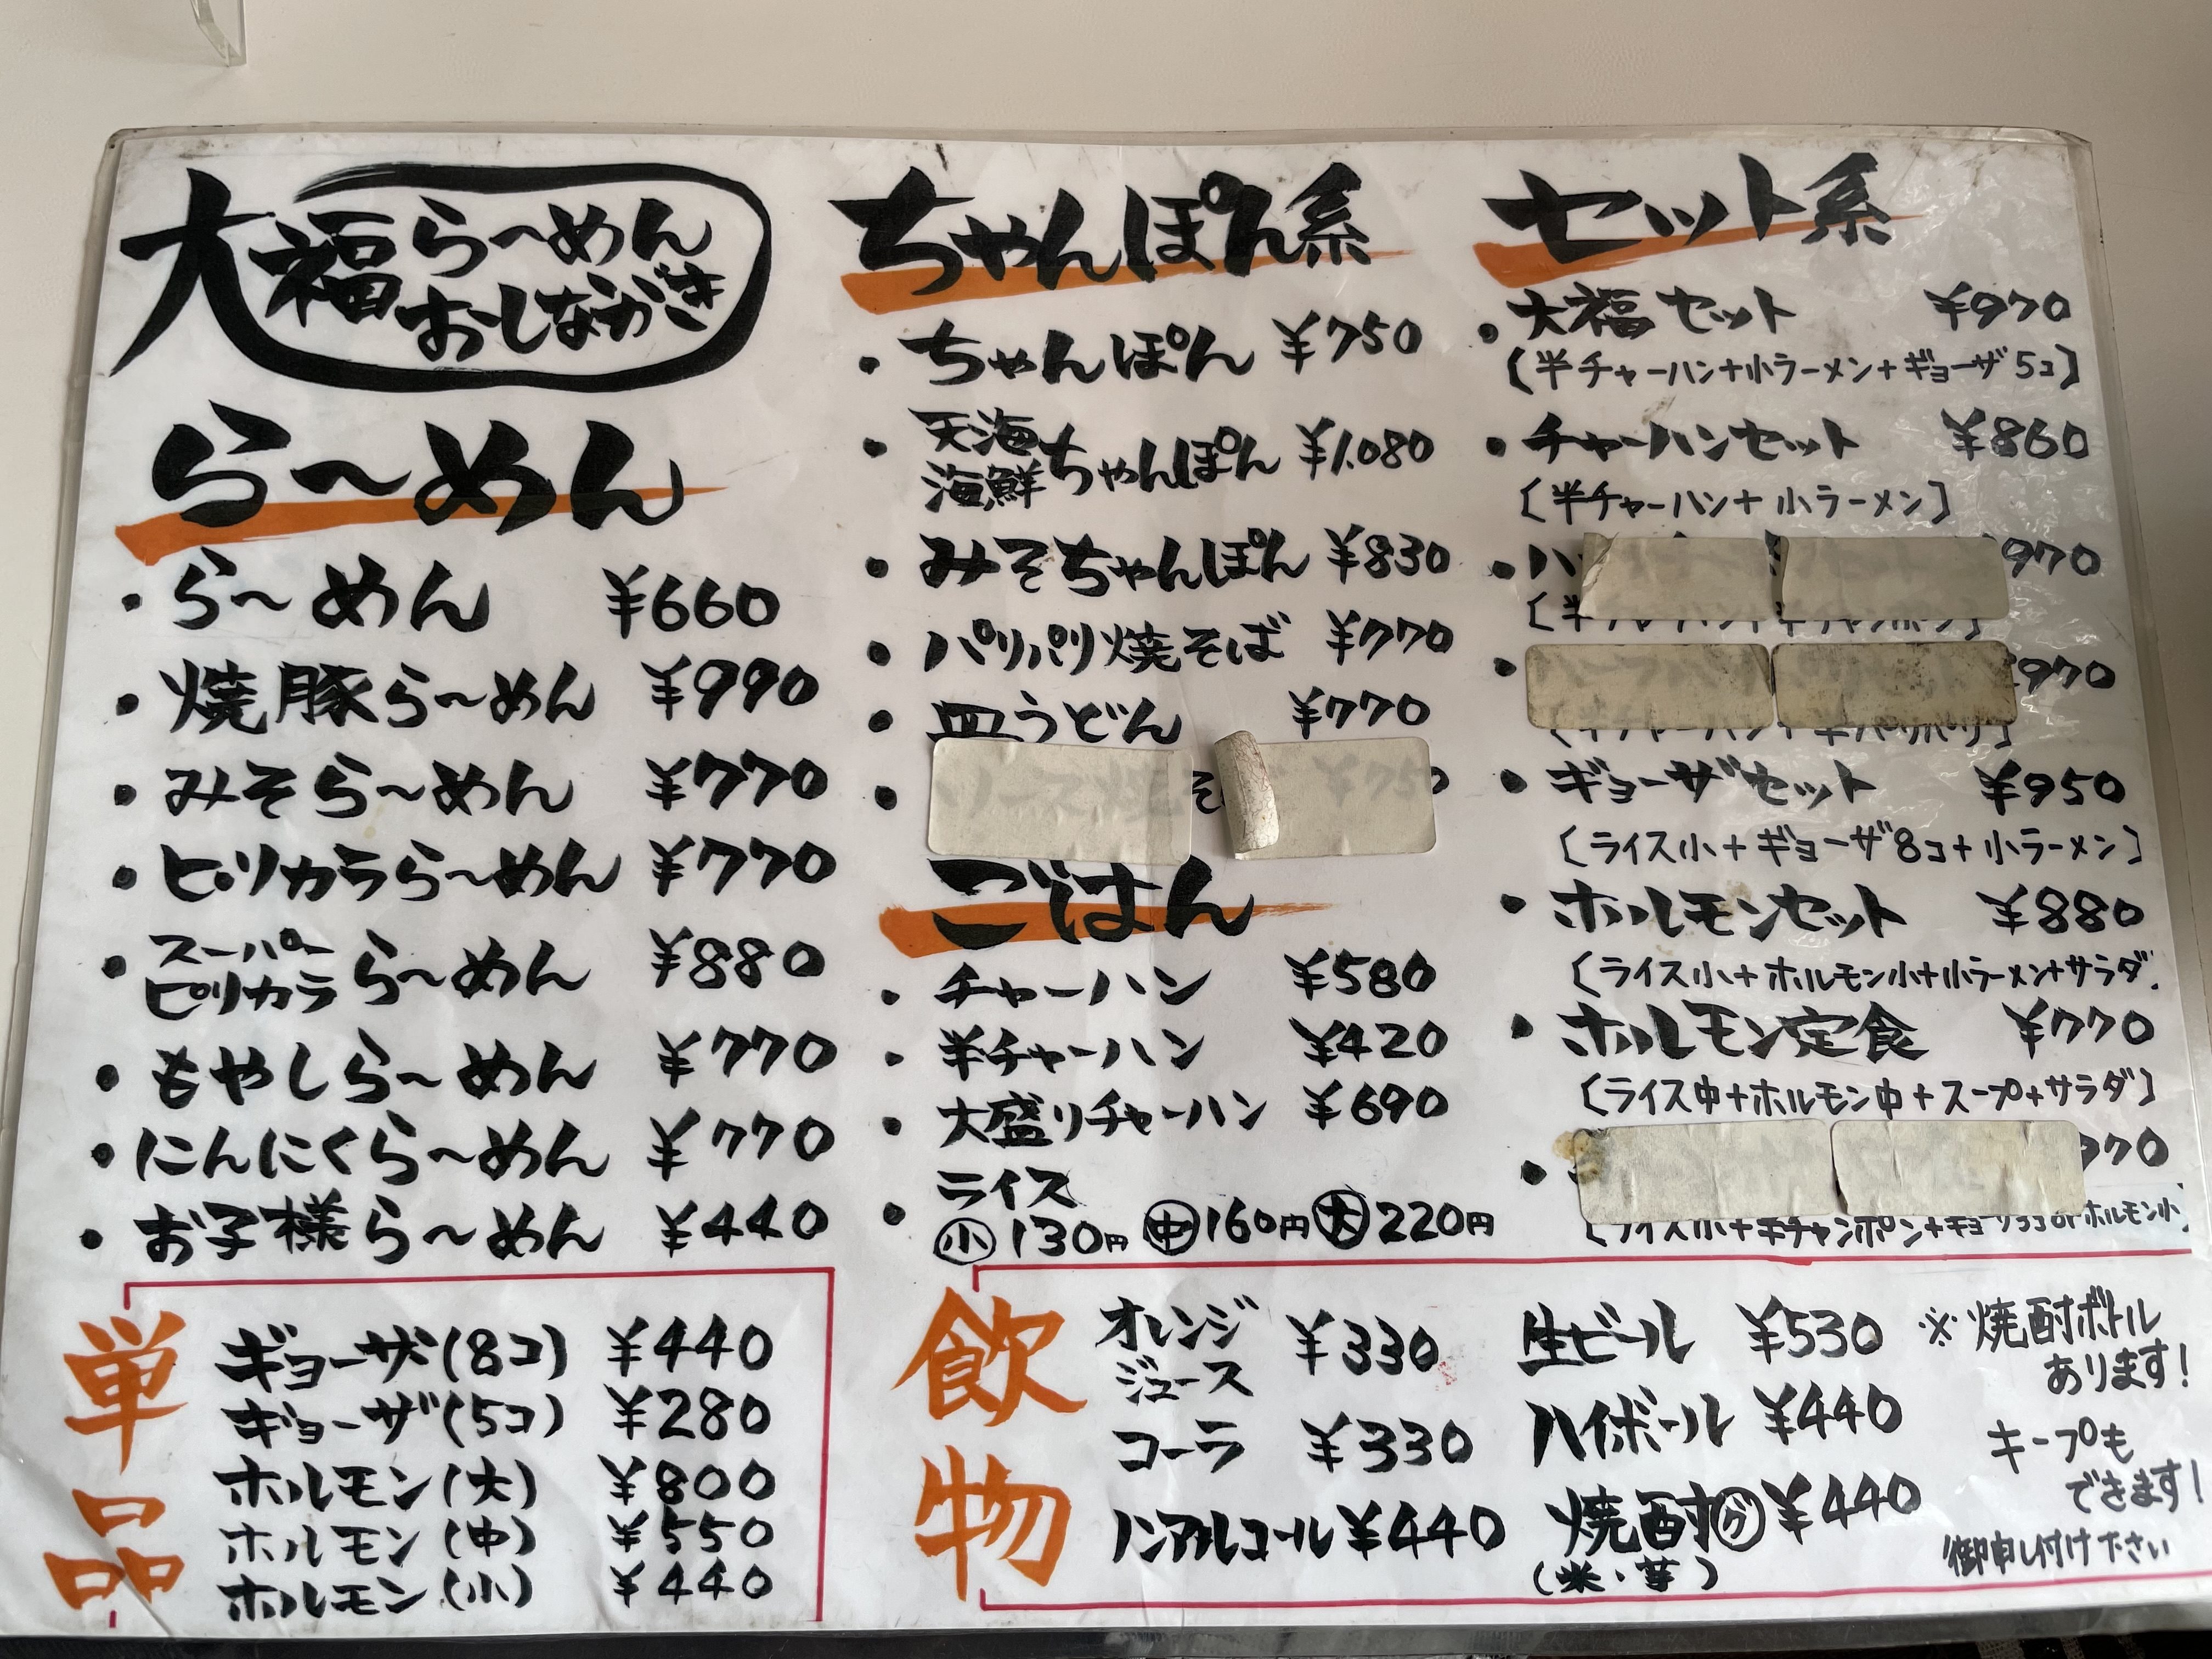 大福らーめん
おしながき
らーめん
・らーめん ¥660
・焼豚らーめん ¥990
・みそらーめん ¥770
・ピリカラらーめん ¥770
・スーパーピリカラらーめん ¥880
・もやしらーめん ¥770
・にんにくらーめん ¥770
・お子様らーめん ¥440
単品
ギョーザ(8コ) ¥440
ギョーザ(5コ) ¥280
ホルモン(大) ¥800
ホルモン(中) ¥550
ホルモン(小) ¥440
ちゃんぽん系
・ちゃんぽん ¥750
・天海海鮮ちゃんぽん ¥1.080
・みそちゃんぽん ¥830
・パリパリ焼そば ¥770
・皿うどん ¥770
・ソース焼そば ¥750
ごはん
・チャーハン ¥580
・半チャーハン ¥420
・大盛りチャーハン ¥690
・ライス
小130円 中160円 大220円
セット系
・大福セット ¥970
〔半チャーハン+小ラーメン+ギョーザ5コ〕
・チャーハンセット ¥860
〔半チャーハン+小ラーメン〕
970
〔半チャーハン+半チャンポン〕
970
〔半チャーハン+半パリパリ〕
・ギョーザセット ¥950
〔ライス小+ギョーザ8コ+小ラーメン〕
・ホルモンセット ¥880
〔ライス小+ホルモン小+小ラーメン+サラダ
・ホルモン定食 ¥770
〔ライス中+ホルモン中+スープ+サラダ〕
970
〔ライス小+半チャンポン+ギョーザ5コorホルモン小〕
飲物
オレンジジュース ¥330
コーラ ¥330
ノンアルコール ¥440
生ビール ¥530
ハイボール ¥440
焼酎グ ¥440
(米・芋)
※焼酎ボトル
あります!
キープも
できます!
御申し付け下さい